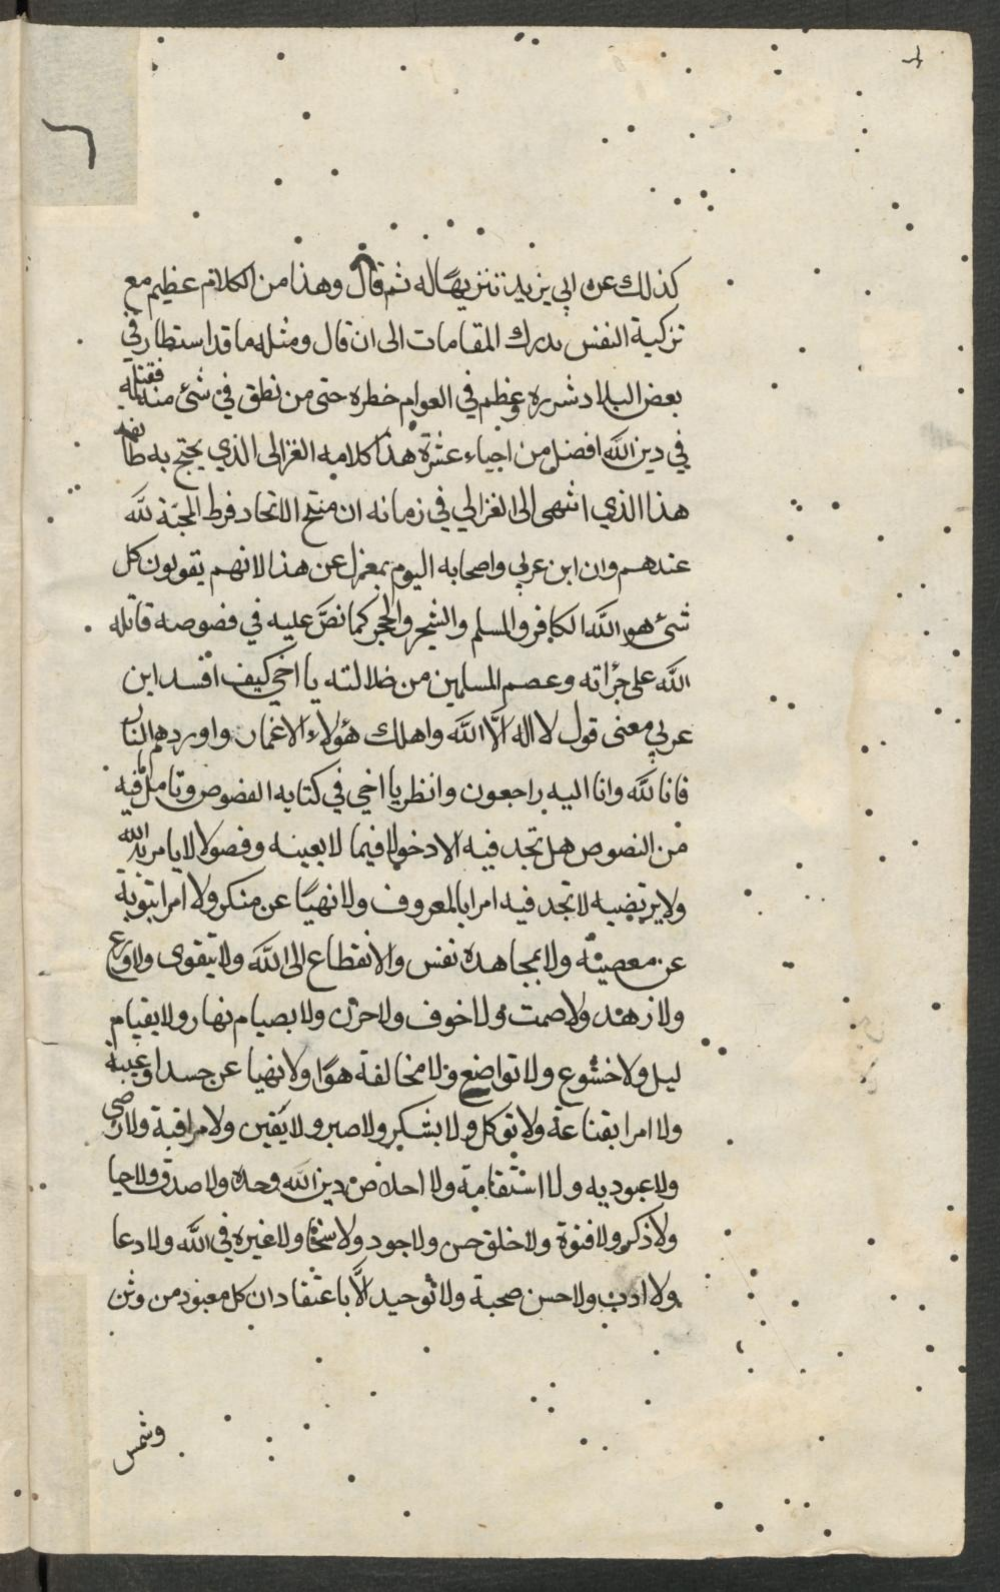 ٦
كذلك عن ابي يزيد تنزيهًا له ثم قال وهذا من الكلام عظيم مع
تزكية النفس بدرك المقامات الى ان قال ومثله ما قد استطار في
بعض البلاد شرره وعظم في العوام خطره حتى من نطق في شئ منه فقتله
في دين الله افضل من احياء عشرة هذا كلامه الغزالى الذي يحتج به طائفة
هذا الذي انتهى الى الغزالي في زمانه ان منتج الاتحاد فرط المحبّة لله
عندهم وان ابن عربي واصحابه اليوم بمعزل عن هذا لانهم يقولون كل
شئ هو الله الكافر والمسلم والشجر والحجر كما نصّ عليه في فصوصه قاتله
الله على جرٔاته وعصم المسلمين من ضلالته يا اخي كيف افسد ابن
عربي معنى قول لا اله الّا الله واهلك هؤلاء الاغمار واوردهم النار
فانا لله وانا اليه راجعون وانظر يا اخي في كتابه الفصوص وتامل ما فيه
من النصوص هل تجد فيه الا دخولا فيما لا يعينه وفصولا لا يامر به الله
ولا يرتضيه لا تجد فيه امرا بالمعروف ولا نهيًا عن منكر ولا امرا بتوبة
عن معصيته ولا بمجاهدة نفس والانقطاع الى الله ولا بتقوى ولا ورع
ولا زهد ولا صمت ولا خوف ولا حزن ولا بصيام نهار ولا بقيام
ليل ولا خشوع ولا تواضع ولا مخالفة هوًا ولا نهيا عن حسد او غيبة
ولا امرا بقناعة ولا توكل ولا بشكر ولا صبر ولا يقين ولا مراقبة ولا رضى
ولا عبوديه ولا استقامة ولا اخلاص دين الله وحده ولا صدق ولا حيا
ولا ذكر ولا فتوة ولا خلق حسن ولا جود ولا سخا ولا غيره في الله ولا دعا
ولا ادب ولا حسن صحبة ولا توحيد الّا باعتقاد ان كل معبود من وثن
وشمس